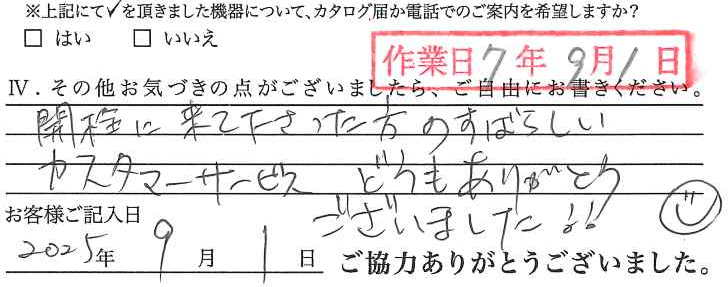 ※上記にて✓を頂きました機器について、カタログ届か電話でのご案内を希望しますか？
□ はい □ いいえ
作業日 7年 9月 1日
Ⅳ．その他お気づきの点がございましたら、ご自由にお書きください。
開栓に来て下さった方のすばらしい
カスタマーサービス どうもありがとう
ございました!!
お客様ご記入日
2025年 9月 1日
ご協力ありがとうございました。